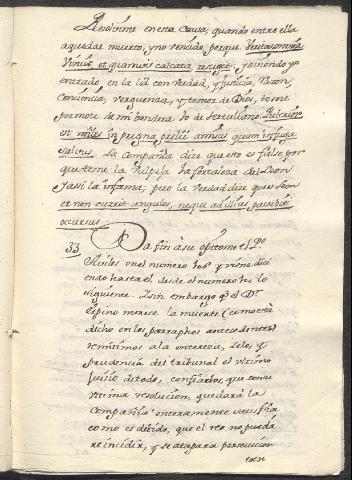 Resolvime en esta Causa, quando entre en ella
a quedar muerto, y no vencido, porque Veritas omnia
Vincit, et quamvis calcata, resurget; y aviendo yo
entrado en la lid con Verdad, y Justicia, Razon,
Conciencia, verguenza, y temor de Dios, tome
por mote de mi bandera lo de Tertuliano: Pulchrior
est miles in pugna pilis amissus quam in fuga
salvus. La Compañia dize que esto es falso, por
que teme la Vulpeja la fortaleza del Leon
y assi la infama; pero la Verdad dize que el Leon
et non currit angulos, neque ad ullius pavebit
occursus.
33 Da fin à su epitome el Pe.
Aviles en el numero 108 y viene dici
endo hasta el, desde el numero 102 lo
siguiente. I sin embargo qe. el Dr.
Espino merece la muerte (como està
dicho en los parraphos antecedentes)
remitimos a la entereza, zelo, y
prudencia del tribunal el vltimo
Juisio de todo, confiados, que con su
vltima resolucion, quedarà la
Compañia enteramente satisfha
como es debido, que el reo no pueda
reincidir, y se atapara persecucion
tan